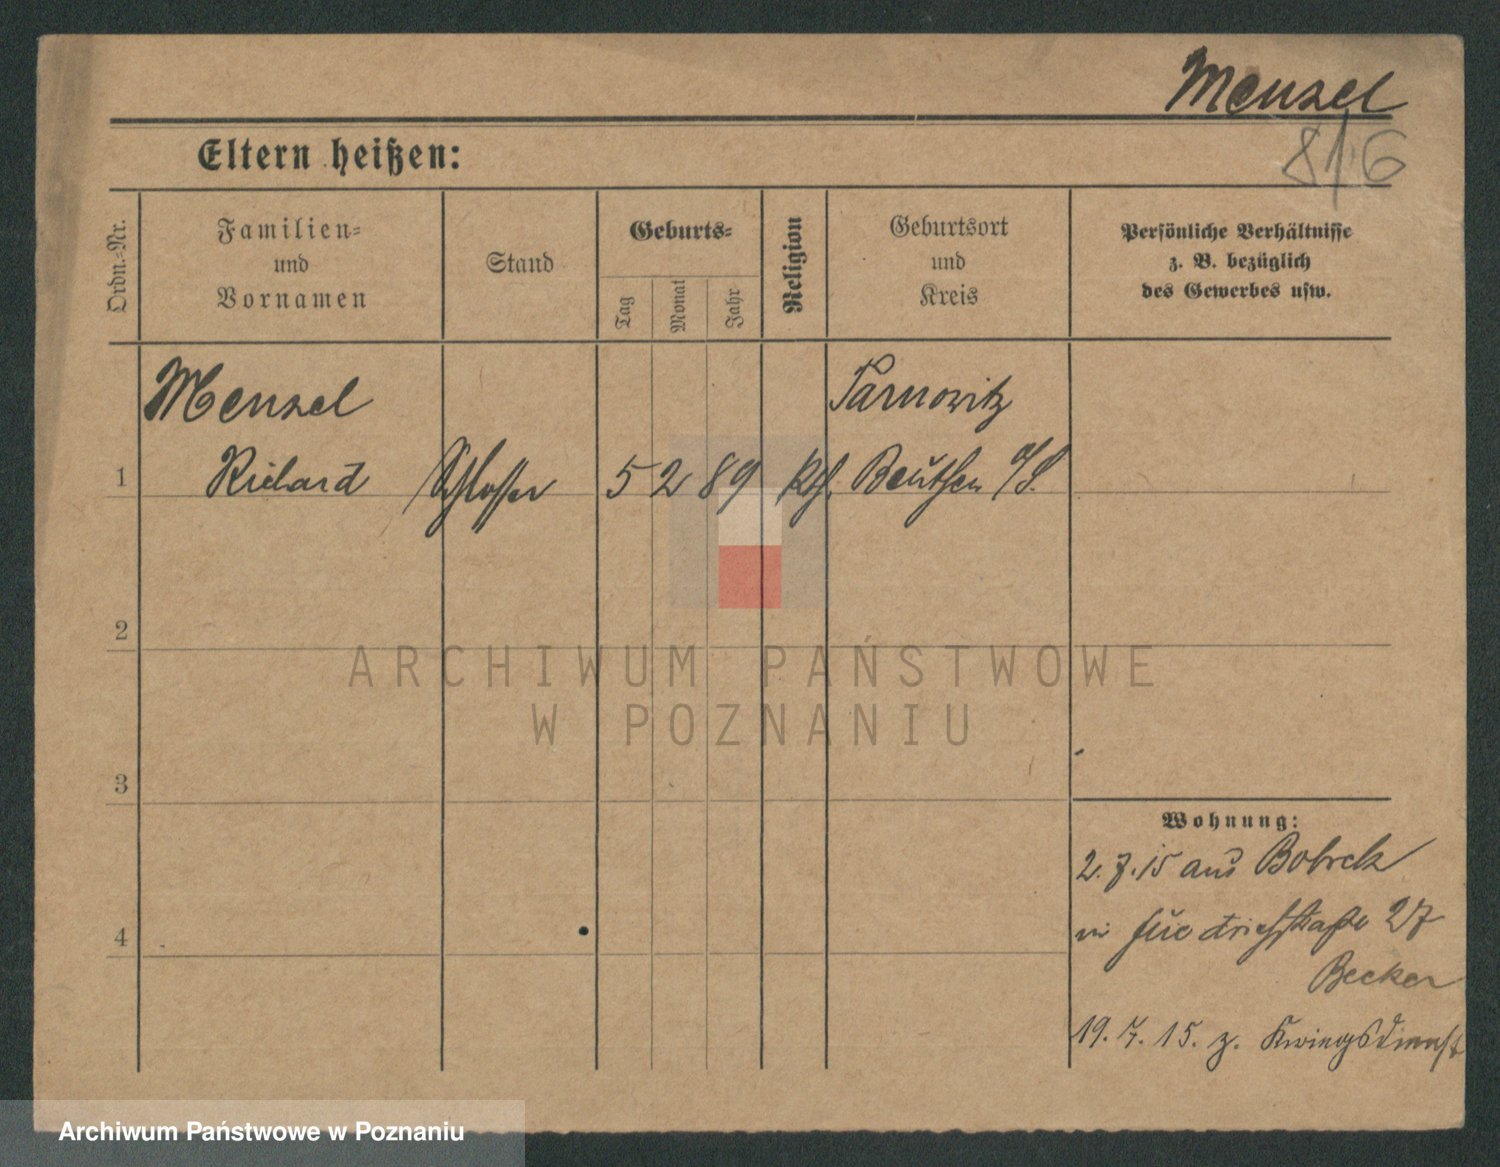 Menzel
816
Eltern heißen:
Ordn.-Nr.
Familien-
und
Vornamen
Stand
Geburts-
Tag
Monat
Jahr
Religion
Geburtsort
und
Kreis
Persönliche Verhältnisse
z. B. bezüglich
des Gewerbes usw.
Menzel
Tarnowitz
1
Richard
Schlosser
5
2
89
kth.
Beuthen O/S.
2
ARCHIWUM PAŃSTWOWE
W POZNANIU
3
Wohnung:
2. 7. 15 aus Bobrek
Friedrichstraße 27
Becker
4
19. 7. 15. z. Kriegsdienst
Archiwum Państwowe w Poznaniu